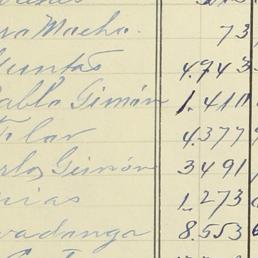 Macho. 73
untas 4.943
ablo Gimón 1.411
Pilar 4.377
arlos Gimón 3491
ias 1.273
vadonga 8.553